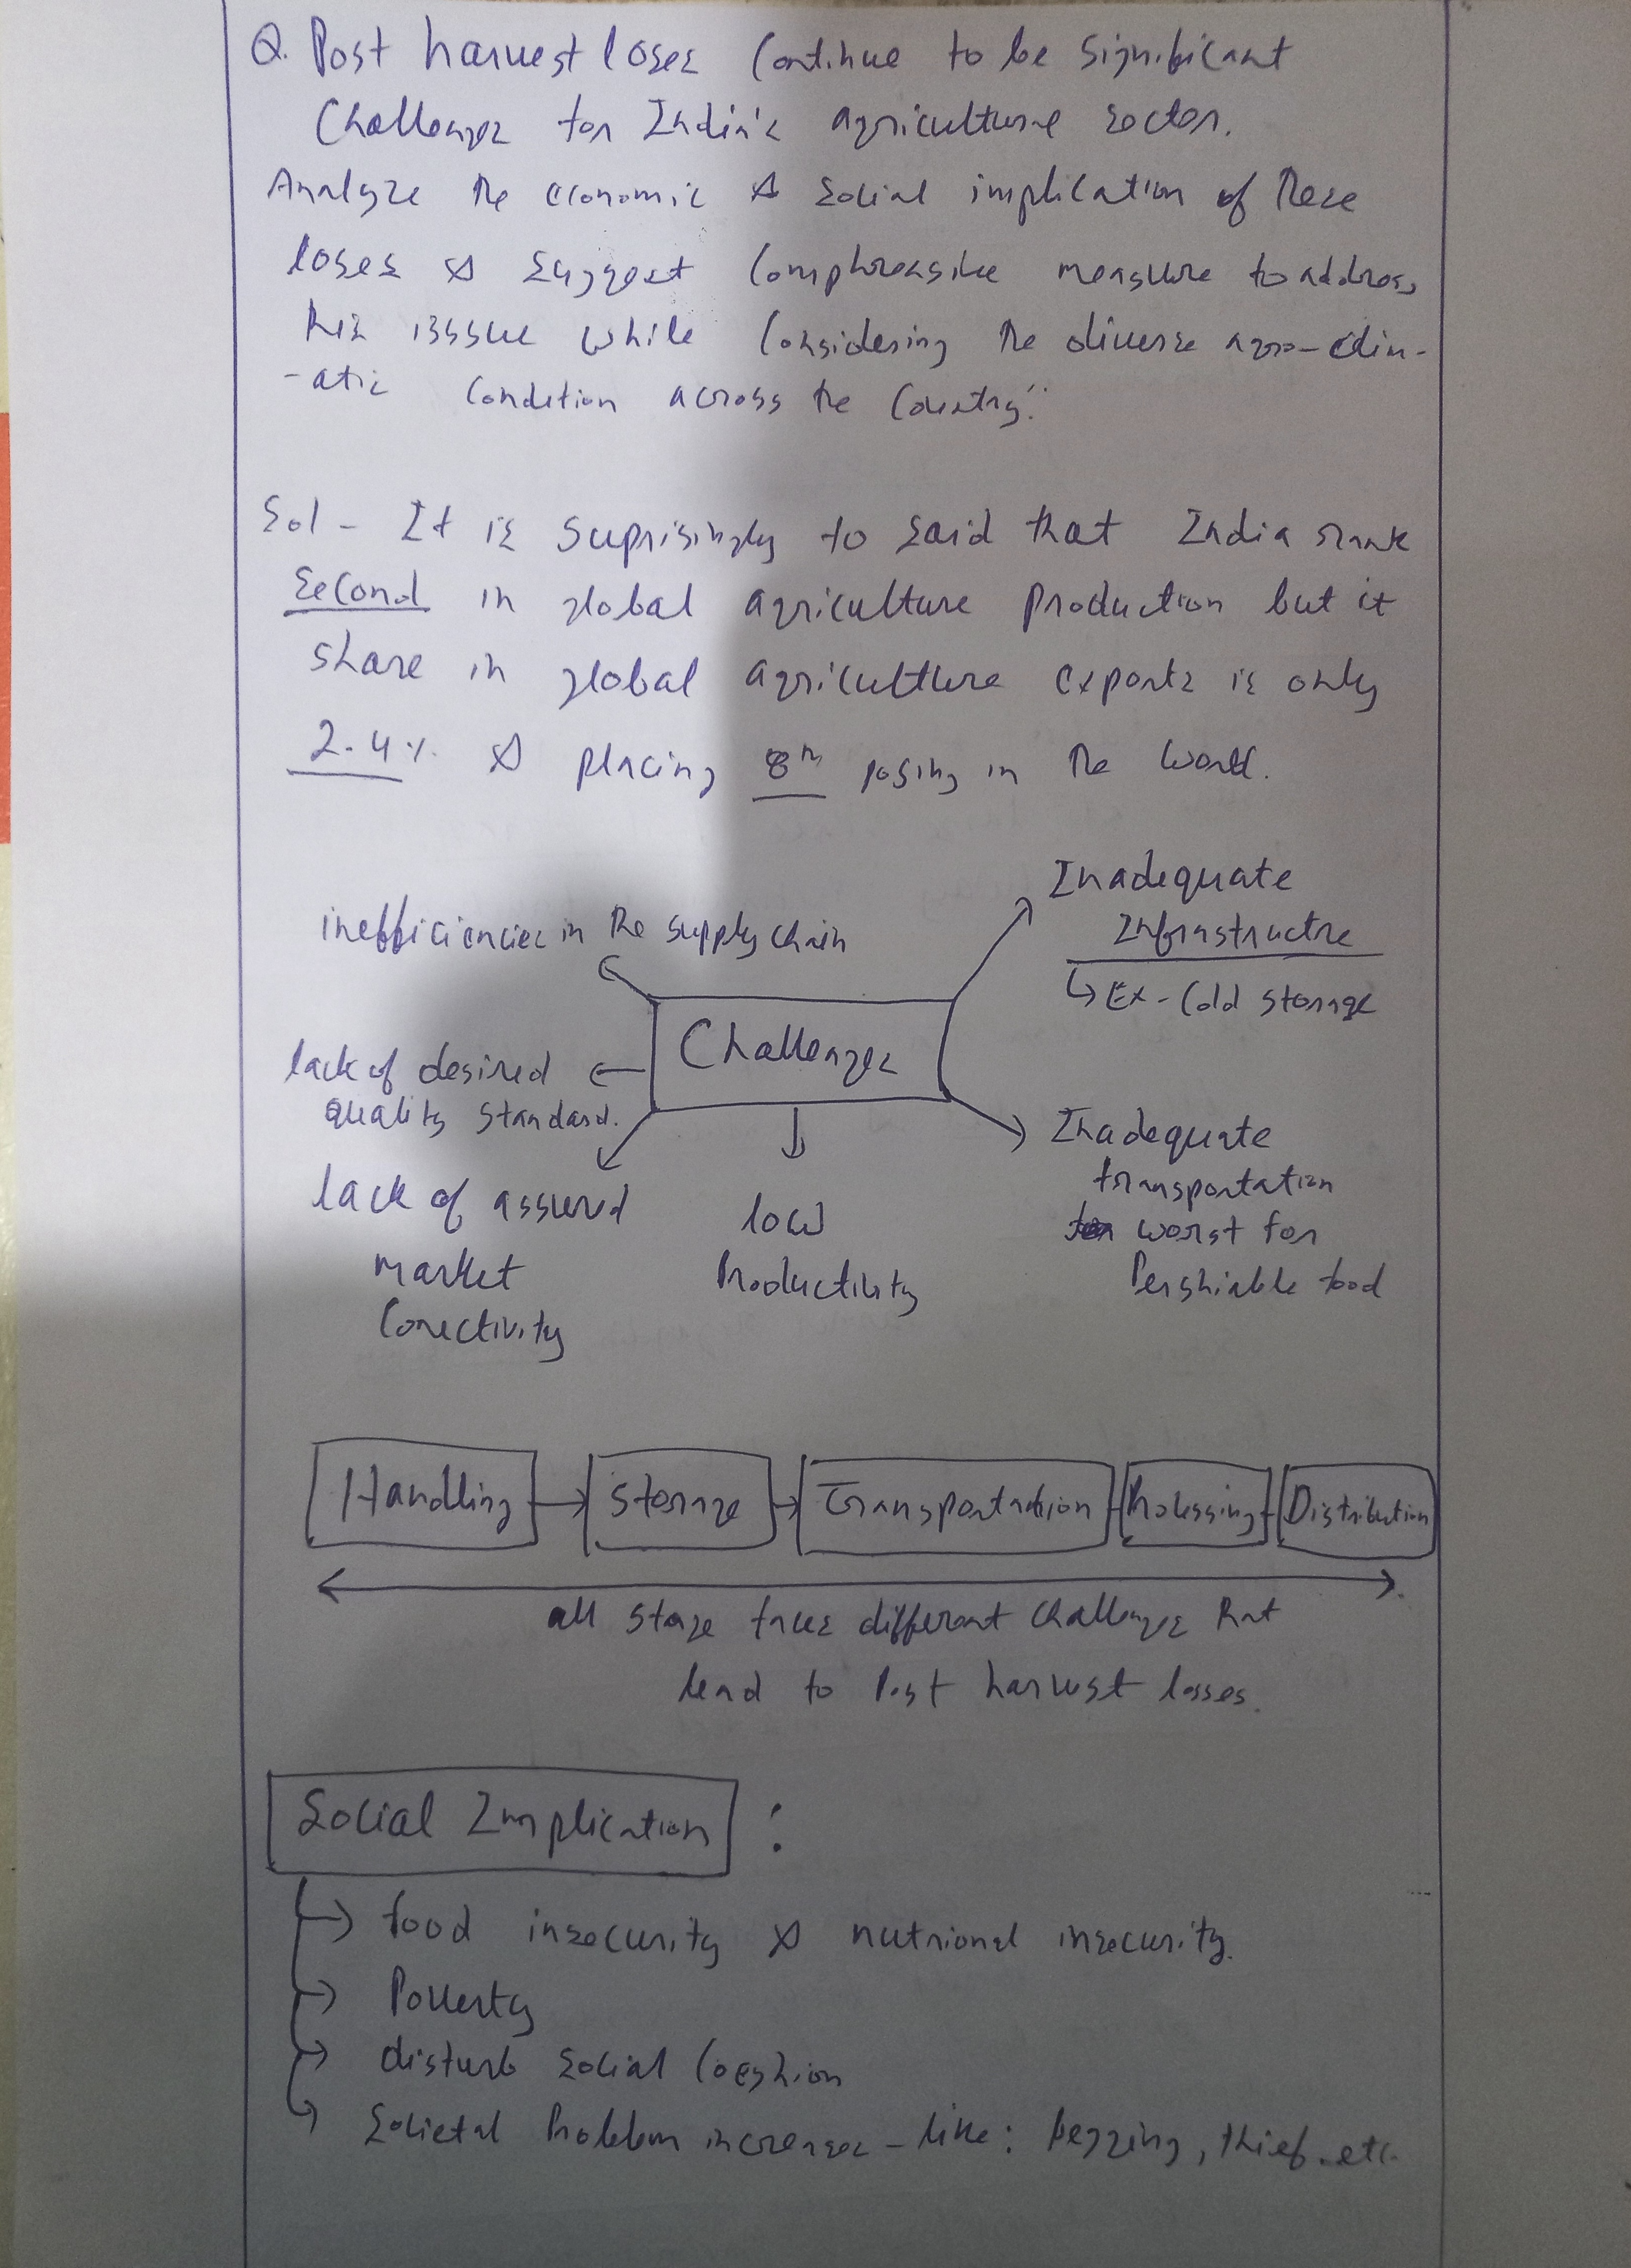 Q. Post harvest loses continue to be significant
Challenges for India's agriculture sector.
Analyze the economic & social implication of these
loses & suggest comphrensive measure to address
this isssue while considering the diverse agro-clim-
-atic condition across the country."
Sol - It is suprisingly to said that India rank
second in global agriculture production but it
share in global agriculture exports is only
2.4% & placing 8th in the world.
inefficiencies in the supply chain
Inadequate
Infrastructre
↳ Ex - Cold storage
Challenges
lack of desired
quality standard.
Inadequate
transportation
worst for
Pershiable food
lack of assured
market
Conectivity
low
Productivity
Handling → Storage → Transportation - Processing - Distribution
all stage faces different challenges that
lead to Post harvest losses.
Social Implication :
→ food insecurity & nutrional insecurity.
→ Poverty
→ disturb social coeshion
→ Societal Problem increases - like: begging, thief. etc.